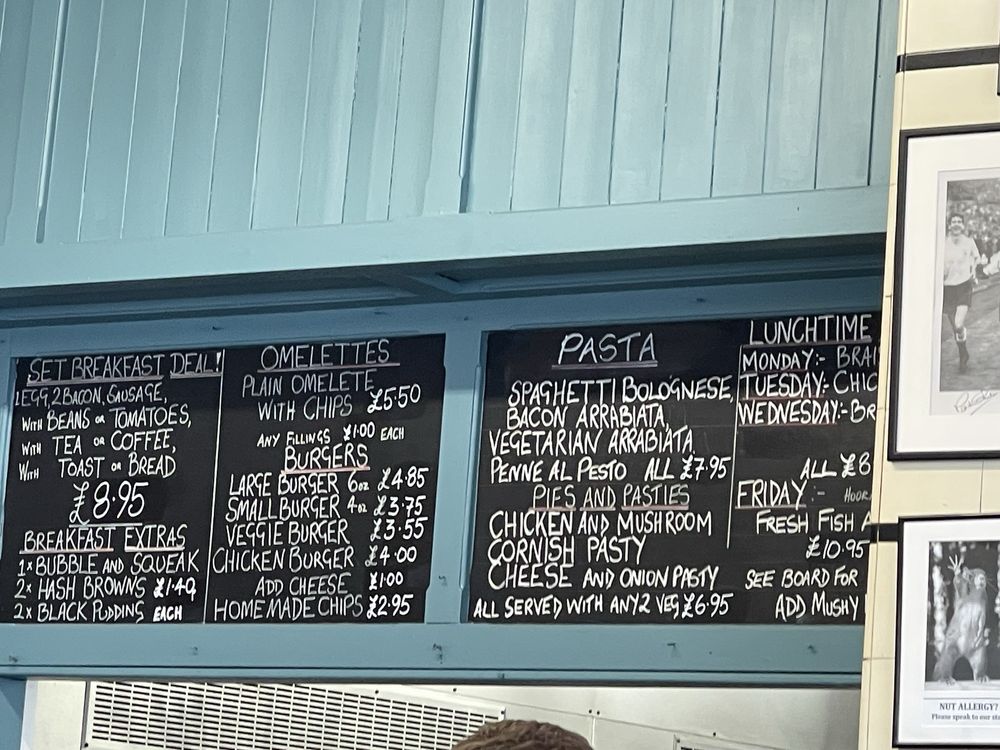 SET BREAKFAST DEAL!
1EGG, 2BACON, SAUSAGE,
WITH BEANS OR TOMATOES,
WITH TEA OR COFFEE,
WITH TOAST OR BREAD
£8.95
BREAKFAST EXTRAS
1x BUBBLE AND SQUEAK
2x HASH BROWNS £1.40,
2x BLACK PUDDING EACH
OMELETTES
PLAIN OMELETE
WITH CHIPS £5.50
ANY FILLINGS £1.00 EACH
BURGERS
LARGE BURGER 6oz £4.85
SMALL BURGER 4oz £3.75
VEGGIE BURGER £3.55
CHICKEN BURGER £4.00
ADD CHEESE £1.00
HOMEMADE CHIPS £2.95
PASTA
SPAGHETTI BOLOGNESE,
BACON ARRABIATA,
VEGETARIAN ARABIATA
PENNE AL PESTO ALL £7.95
PIES AND PASTIES
CHICKEN AND MUSHROOM
CORNISH PASTY
CHEESE AND ONION PASTY
ALL SERVED WITH ANY 2 VEG £6.95
LUNCHTIME
MONDAY:- BRAI
TUESDAY:- CHIC
WEDNESDAY:- BR
ALL £8
FRIDAY:-
FRESH FISH A
£10.95
SEE BOARD FOR
ADD MUSHY
NUT ALLERGY?
Please speak to our sta